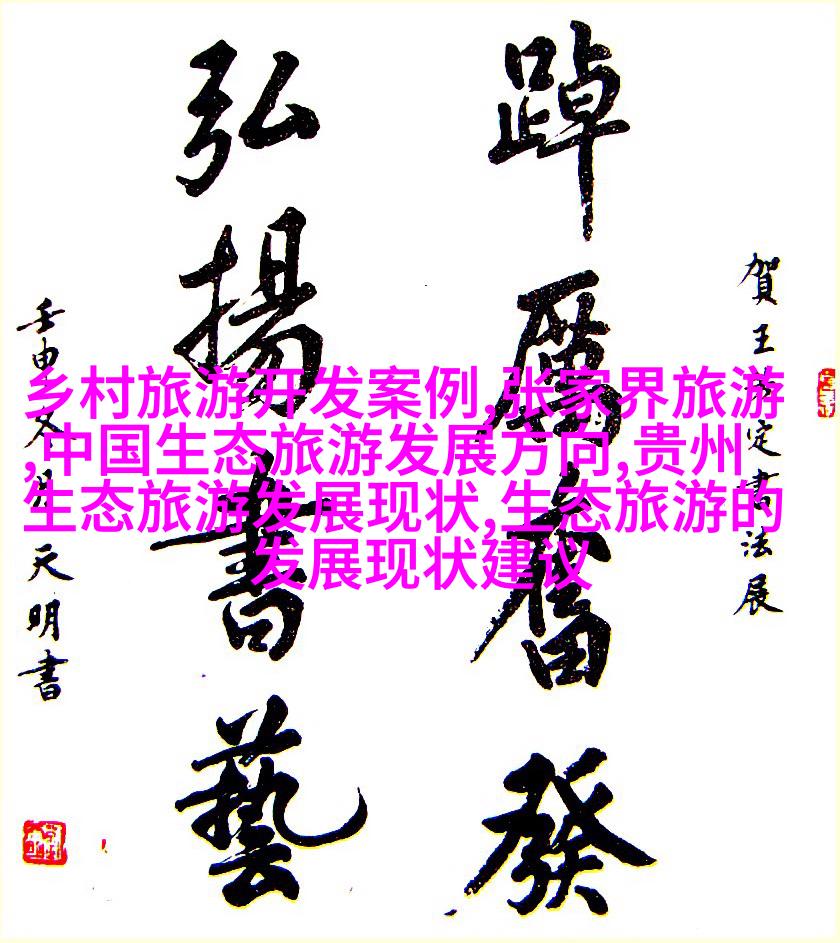 賀王
定書法展
踔厲奮發
弘揚書藝
壬申
天明書
乡村旅游开发案例,张家界旅游
,中国生态旅游发展方向,贵州
生态旅游发展现状,生态旅游的
发展现状建议